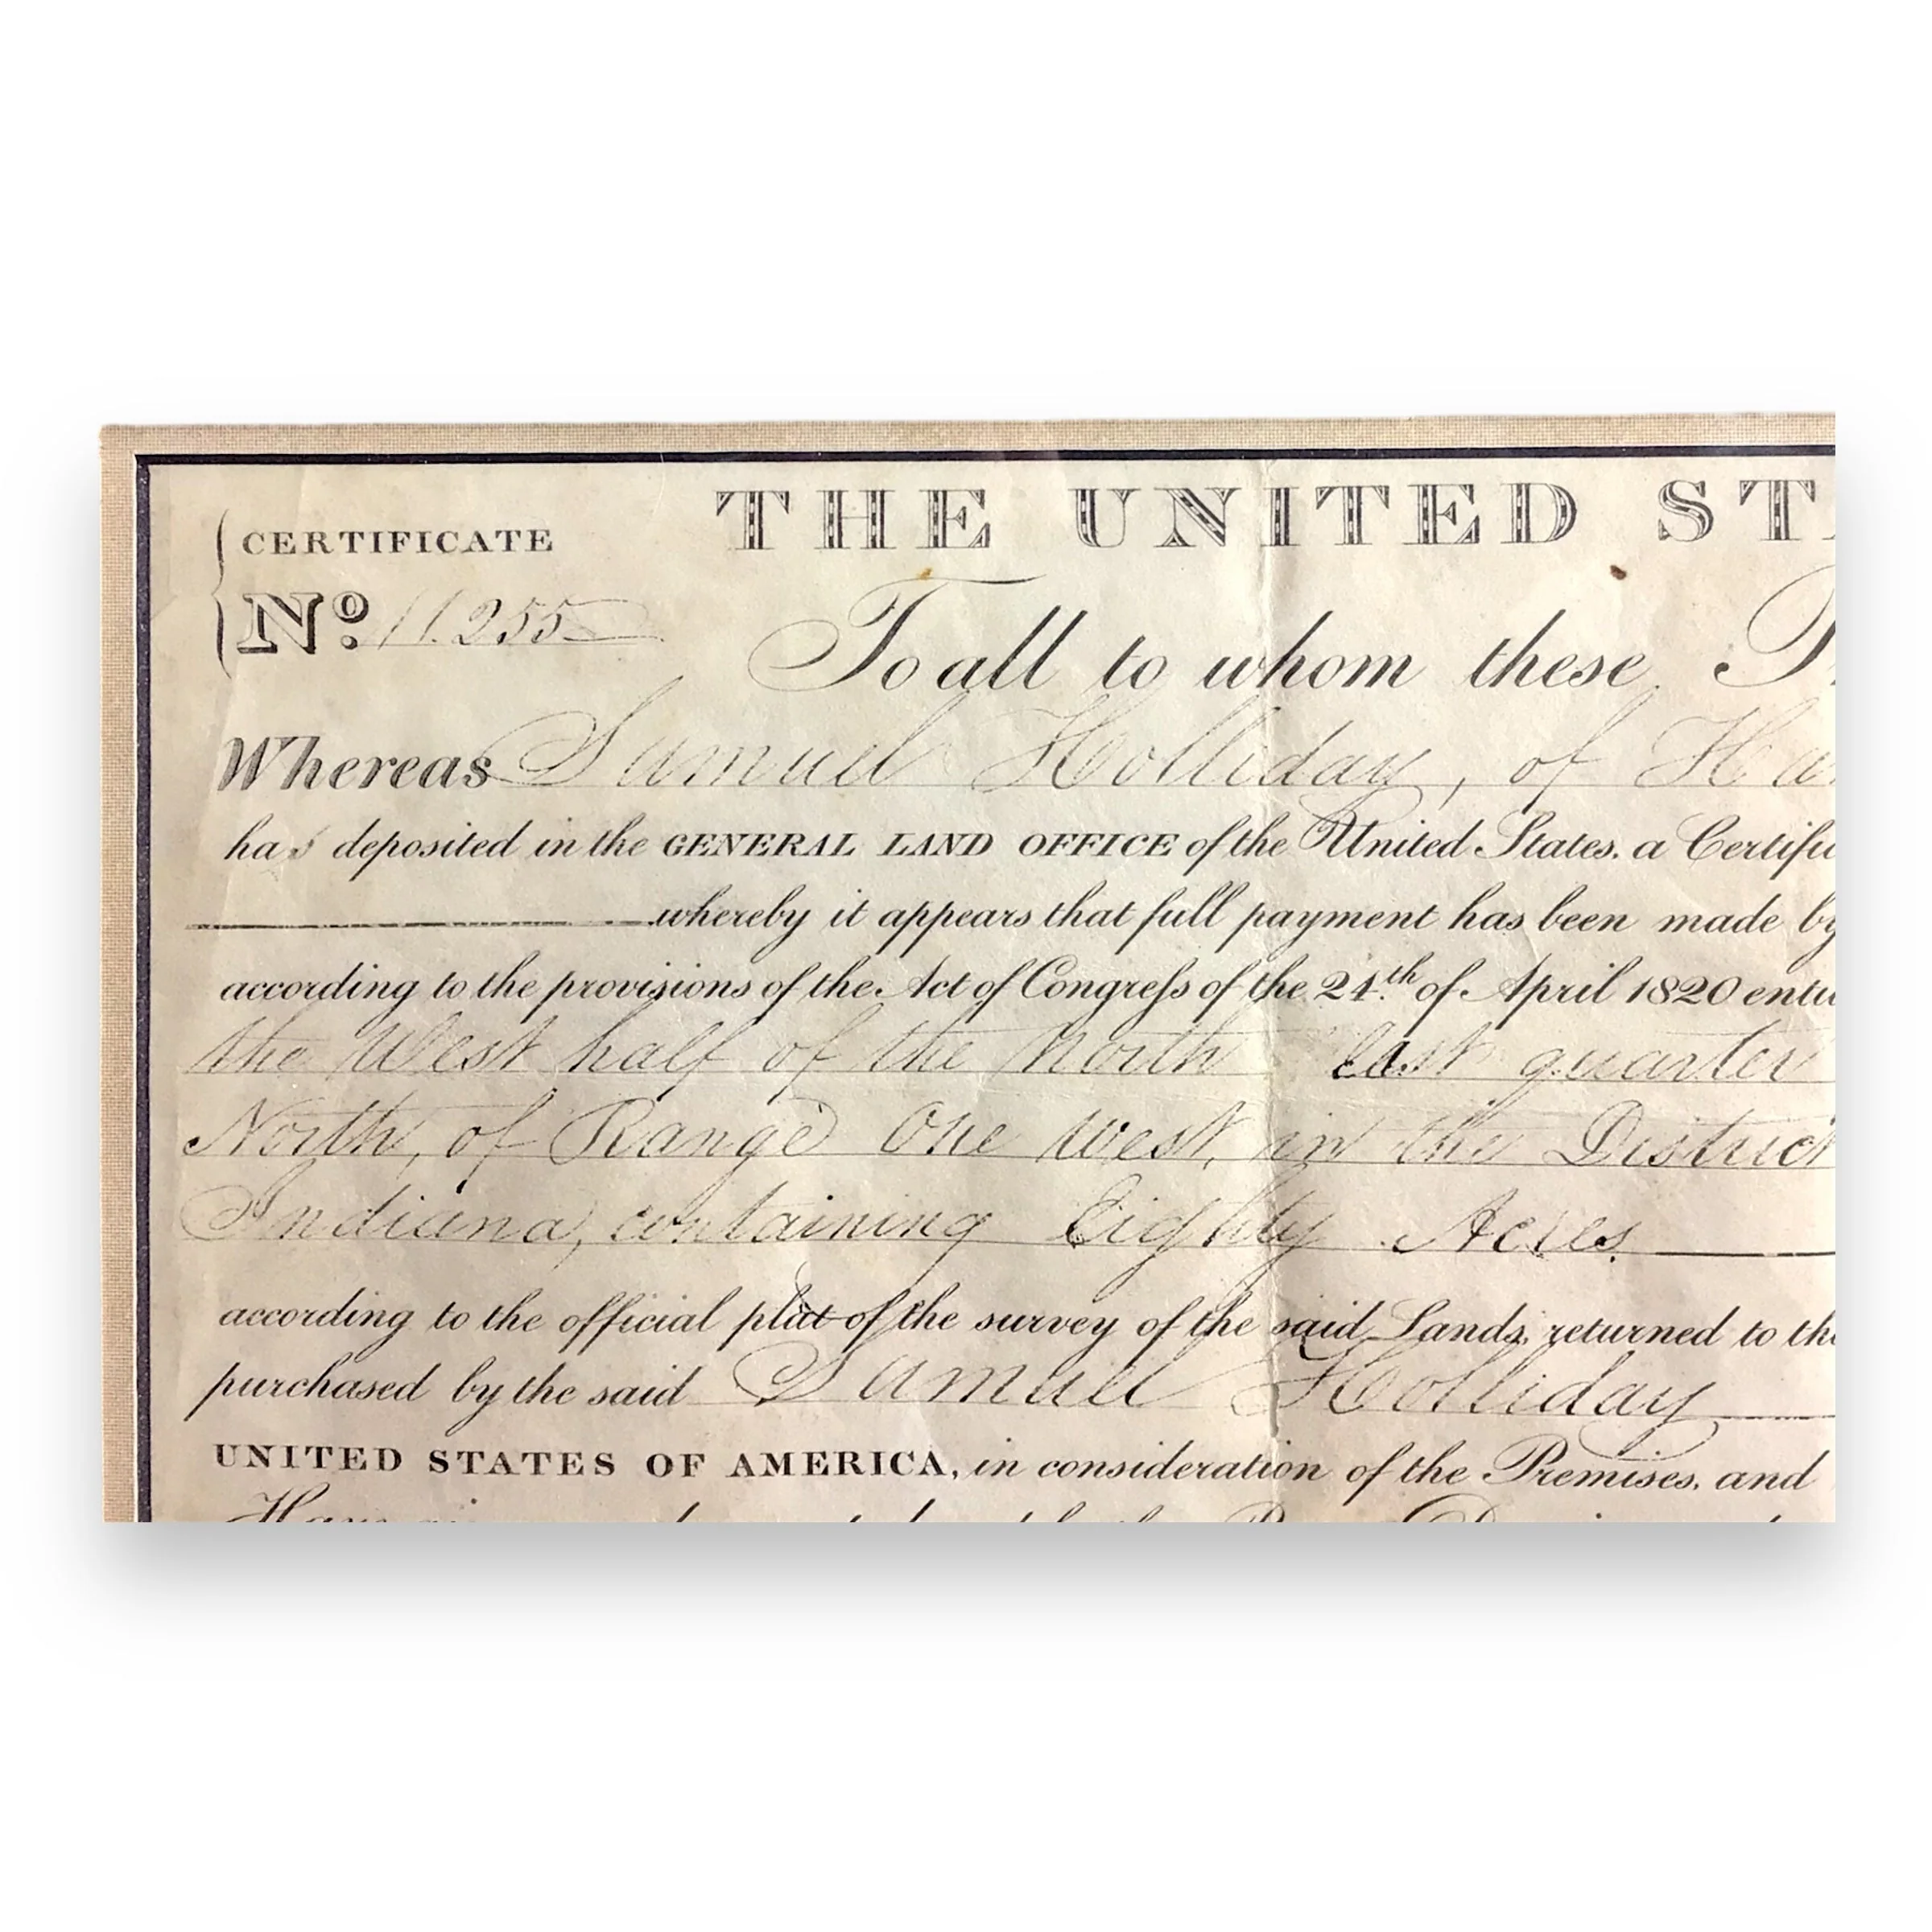 THE UNITED ST
CERTIFICATE
No. 11.255
To all to whom these
Whereas Samuel Holliday, of Ha
has deposited in the GENERAL LAND OFFICE of the United States, a Certific
whereby it appears that full payment has been made by
according to the provisions of the Act of Congreſs of the 24.th of April 1820 entit
the West half of the North East quarter
North, of Range One West, in the District
Indiana, containing Eighty Acres.
according to the official plat of the survey of the said Lands, returned to the
purchased by the said Samuel Holliday
UNITED STATES OF AMERICA, in consideration of the Premises, and